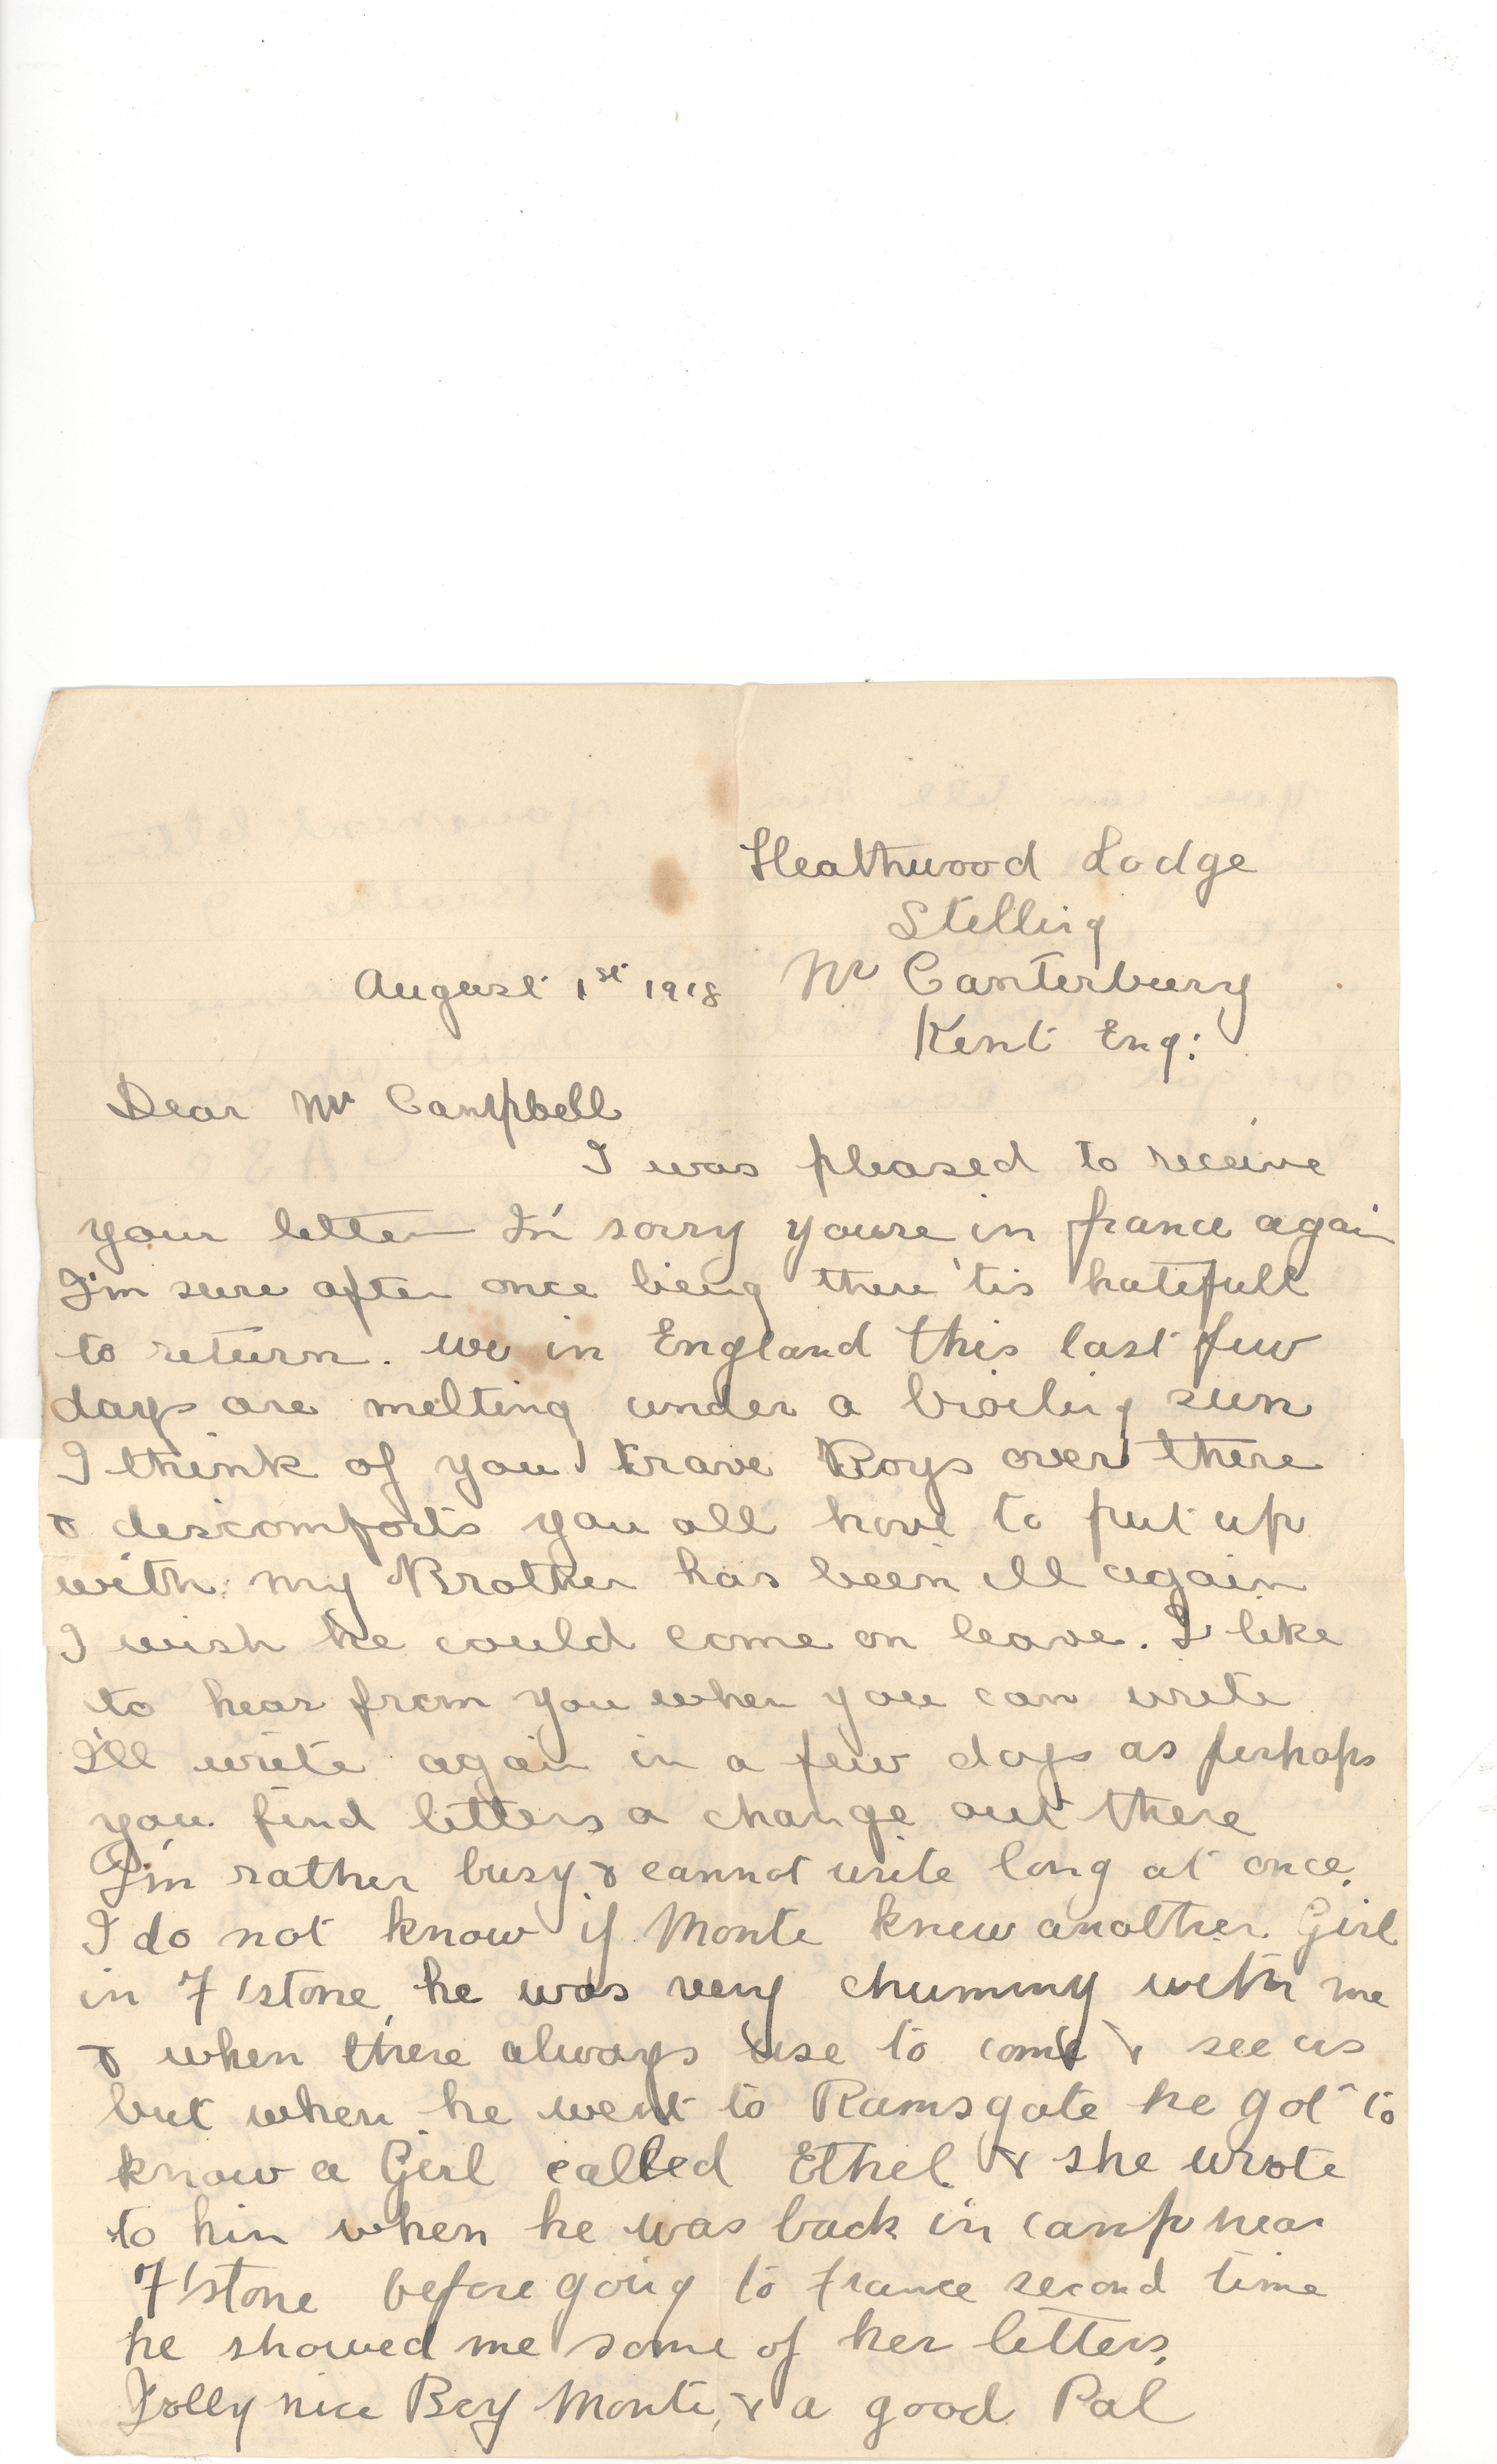 Heathwood Lodge
Stelling
August 1st 1918 Nr Canterbury
Kent Eng:
Dear Mr Campbell
I was pleased to receive
your letter I'm sorry youre in france again
I'm sure after once being there 'tis hatefull
to return. We in England this last few
days are melting under a broiling sun
I think of you brave Boys over there
& descomforts you all have to put up
with. my Brother has been ill again
I wish he could come on leave. I like
to hear from you when you can write
I'll write again in a few days as perhaps
you find letters a change out there
I'm rather busy & cannot write long at once.
I do not know if Monte knew another Girl
in F'stone, he was very chummy with me
& when there always use to come & see us
but when he went to Ramsgate he got to
know a Girl called Ethel & she wrote
to him when he was back in camp near
F'stone before going to France second time
he showed me some of her letters.
Jolly nice Boy Monte, & a good Pal